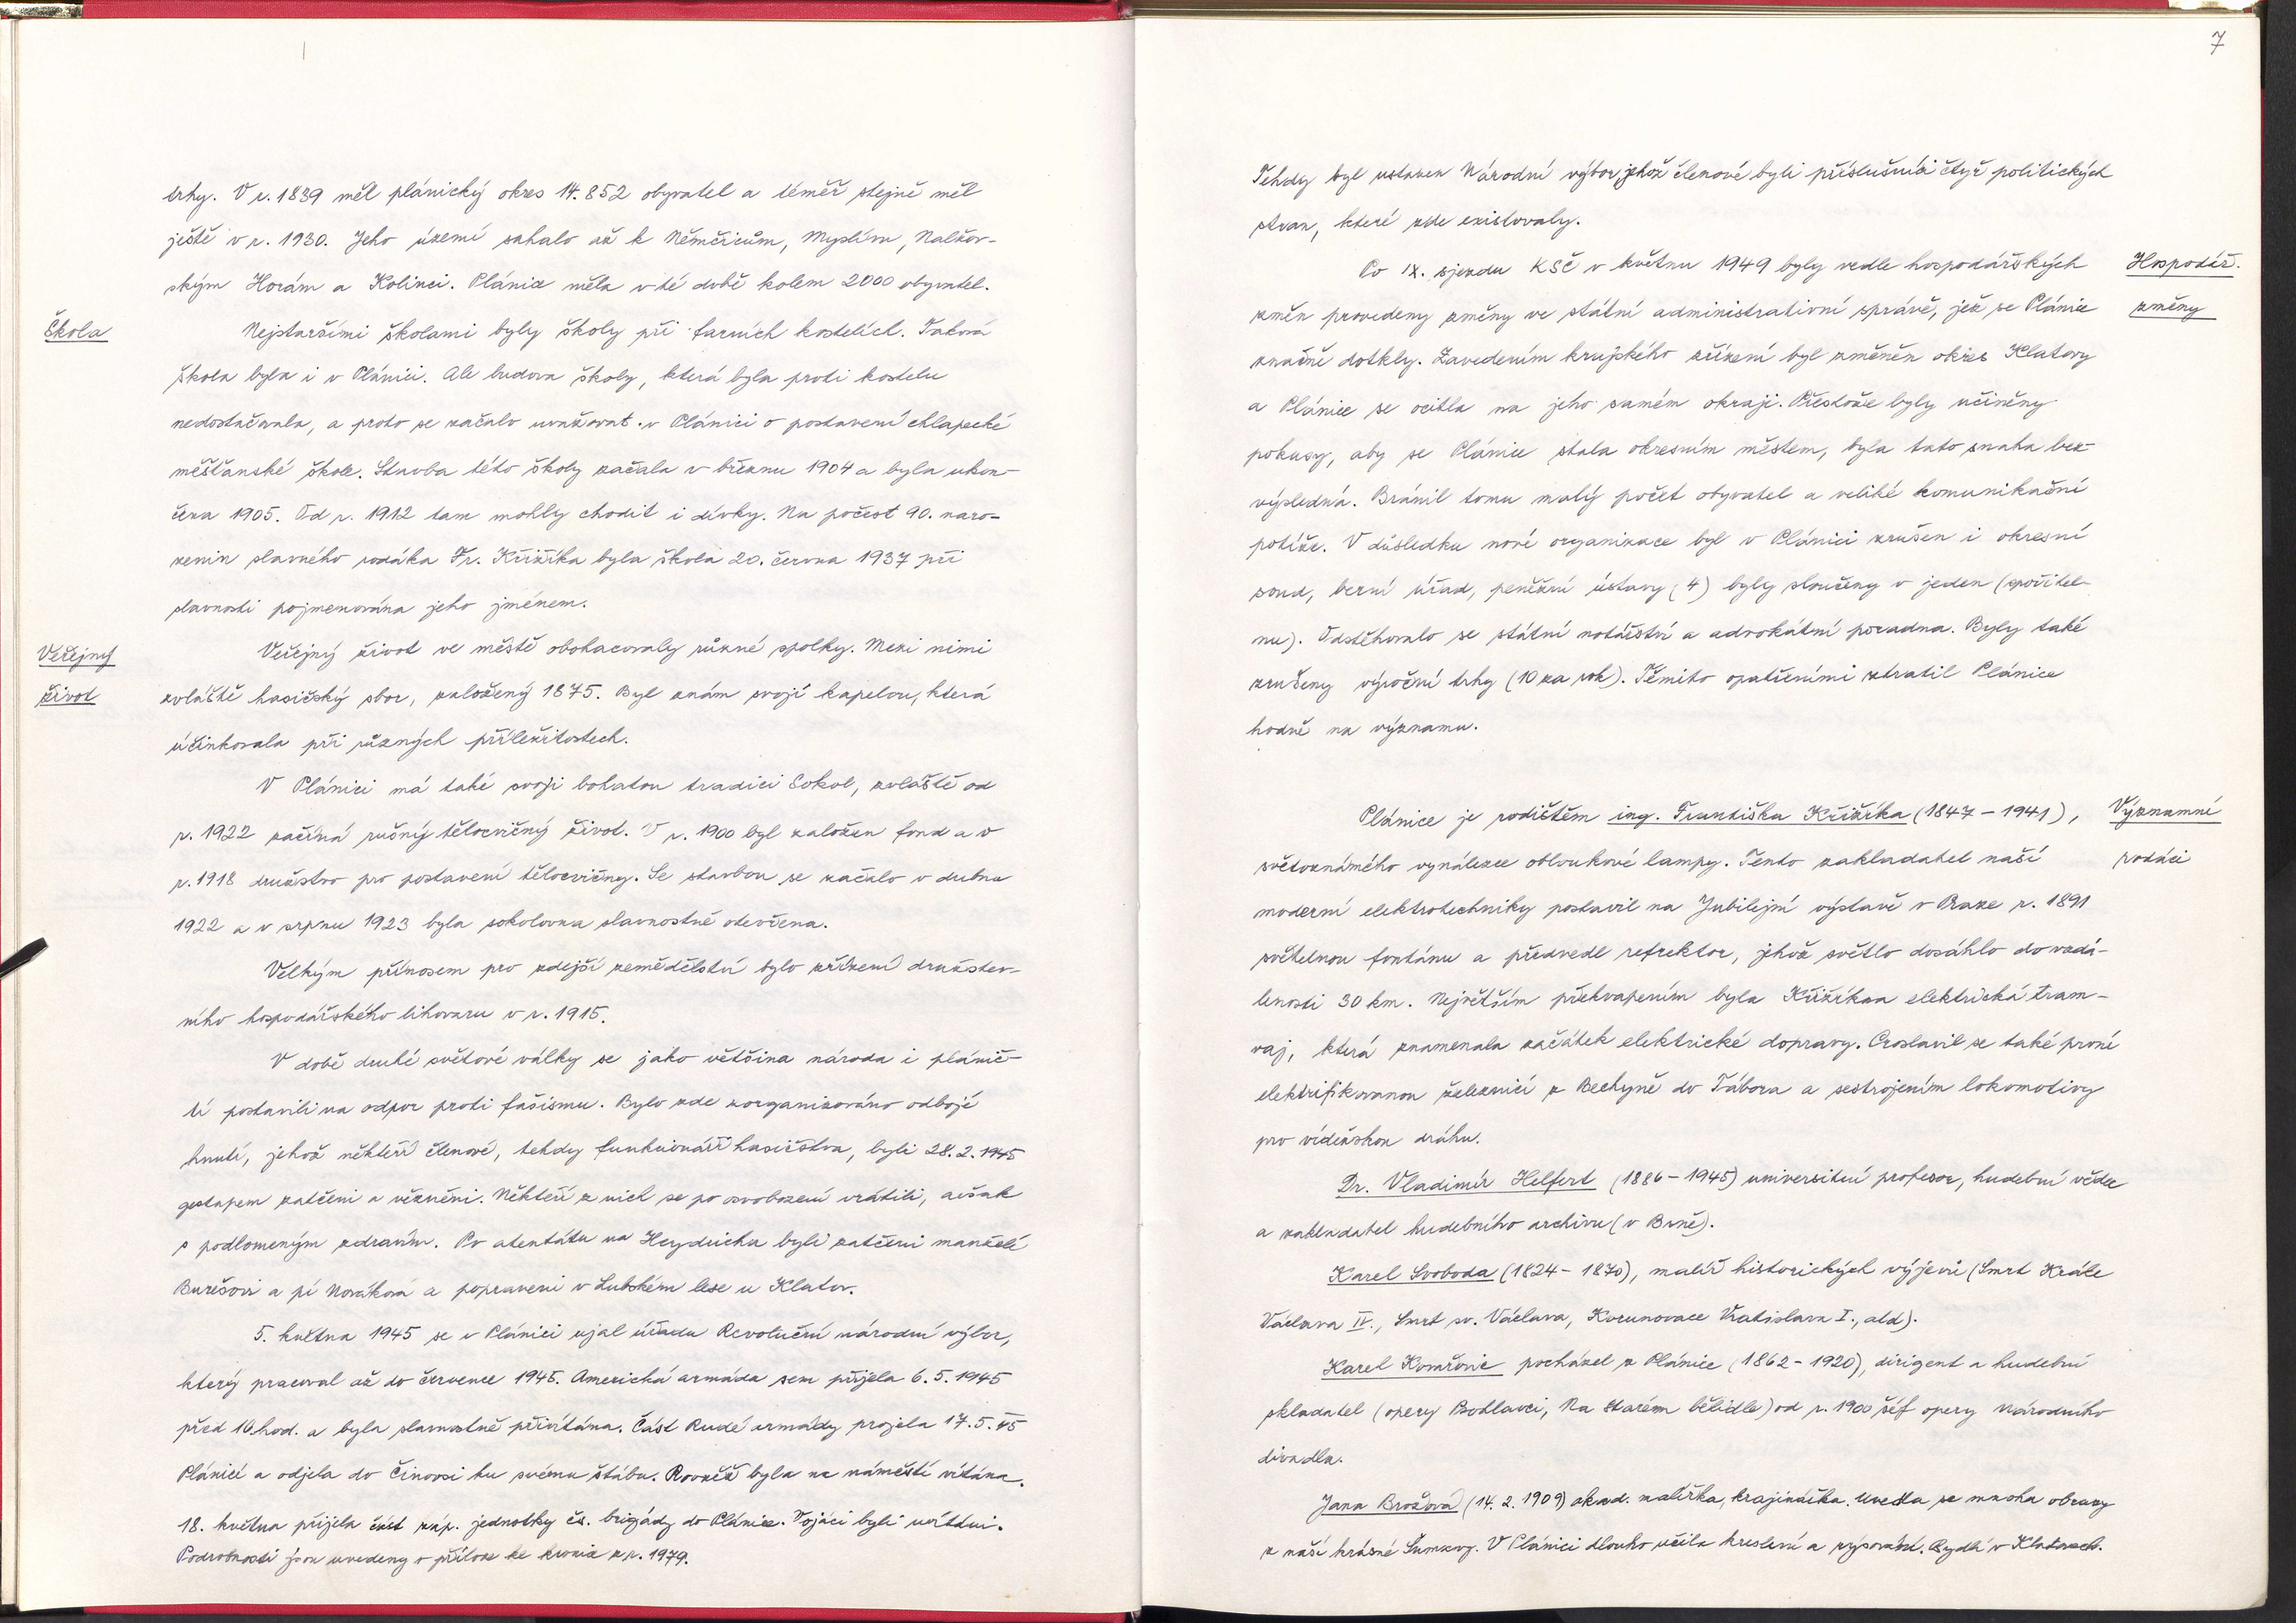 trhy. V r. 1839 měl plánický okres 14.852 obyvatel a téměř stejně měl
ještě v r. 1930. Jeho území sahalo až k Němčicům, Myslívu, Nalžov-
ským Horám a Kolinci. Plánice měla v té době kolem 2000 obyvatel.
Škola
Nejstaršími školami byly školy při farních kostelích. Taková
škola byla i v Plánici. Ale budova školy, která byla proti kostelu
nedostačovala, a proto se začalo uvažovat v Plánici o postavení chlapecké
měšťanské škole. Stavba této školy začala v březnu 1904 a byla ukon-
čena 1905. Od r. 1912 tam mohly chodit i dívky. Na počest 90. naro-
zenin slavného rodáka Fr. Křižíka byla škola 20. června 1937 při
slavnosti pojmenována jeho jménem.
Veřejný
život
Veřejný život ve městě obohacovaly různé spolky. Mezi nimi
zvláště hasičský sbor, založený 1875. Byl znám svojí kapelou, která
účinkovala při různých příležitostech.
V Plánici má také svoji bohatou tradici Sokol, zvláště od
r. 1922 začíná rušný tělocvičný život. V r. 1900 byl založen fond a v
r. 1918 družstvo pro postavení tělocvičny. Se stavbou se začalo v dubnu
1922 a v srpnu 1923 byla sokolovna slavnostně otevřena.
Velkým přínosem pro zdejší zemědělství bylo zřízení družstev-
ního hospodářského lihovaru v r. 1915.
V době druhé světové války se jako většina národa i plánič-
tí postavili na odpor proti fašismu. Bylo zde zorganizováno odbojé
hnutí, jehož někteří členové, tehdy funkcionáři hasičstva, byli 28.2.1945
gestapem zatčeni a vězněni. Někteří z nich se po osvobození vrátili, avšak
s podlomeným zdravím. Po atentátu na Heydricha byli zatčeni manželé
Burešovi a pí Nováková a popraveni v Lubském lese u Klatov.
5. května 1945 se v Plánici ujal úřadu Revoluční národní výbor,
který pracoval až do července 1945. Americká armáda sem přijela 6.5.1945
před 10.hod. a byla slavnostně přivítána. Část Rudé armády projela 17.5.45
Plánicí a odjela do Činovsi ku svému štábu. Rovněž byla na náměstí vítána.
18. května přijela část záp. jednotky čs. brigády do Plánice. Vojáci byli uvítáni.
Podrobnosti jsou uvedeny v příloze ke kronice z r. 1979.
7
Tehdy byl ustaven Národní výbor, jehož členové byli příslušníci čtyř politických
stran, které zde existovaly.
Po IX. sjezdu KSČ v květnu 1949 byly vedle hospodářských
Hospodář.
změn provedeny změny ve státní administrativní správě, jež se Plánice
změny
značně dotkly. Zavedením krajského zřízení byl změněn okres Klatovy
a Plánice se ocitla na jeho samém okraji. Přestože byly učiněny
pokusy, aby se Plánice stala okresním městem, byla tato snaha bez-
výsledná. Bránil tomu malý počet obyvatel a veliké komunikační
potíže. V důsledku nové organizace byl v Plánici zrušen i okresní
soud, berní úřad, peněžní ústavy (4) byly sloučeny v jeden (spořitel-
nu). Odstěhovalo se státní notářství a advokátní poradna. Byly také
zrušeny výroční trhy (10 za rok). Těmito opatřeními ztratil Plánice
hodně na významu.
Plánice je rodištěm ing. Františka Křižíka (1847 – 1941),
Významní
rodáci
světoznámého vynálezce obloukové lampy. Tento zakladatel naší
moderní elektrotechniky postavil na Jubilejní výstavě v Praze r. 1891
světelnou fontánu a předvedl refrektor, jehož světlo dosáhlo do vzdá-
lenosti 30 km. Největším překvapením byla Křižíkova elektrická tram-
vaj, která znamenala začátek elektrické dopravy. Proslavil se také první
elektrifikovanou železnicí z Bechyně do Tábora a sestrojením lokomotivy
pro vídeňskou dráhu.
Dr. Vladimír Helfert (1886 – 1945) universitní profesor, hudební vědec
a zakladatel hudebního archivu (v Brně).
Karel Svoboda (1824 – 1870), malíř historických výjevů (Smrt Krále
Václava IV., Smrt sv. Václava, Korunovace Vratislava I., atd).
Karel Kovařovic pocházel z Plánice (1862 – 1920), dirigent a hudební
skladatel (opery Psohlavci, Na starém bělidle) od r. 1900 šéf opery národního
divadla.
Jana Brožová (14.2.1909) akad. malířka, krajinářka. Uvedla se mnoha obrazy
z naší krásné Šumavy. V Plánici dlouho učila kreslení a rýsování. Bydlí v Klatovech.